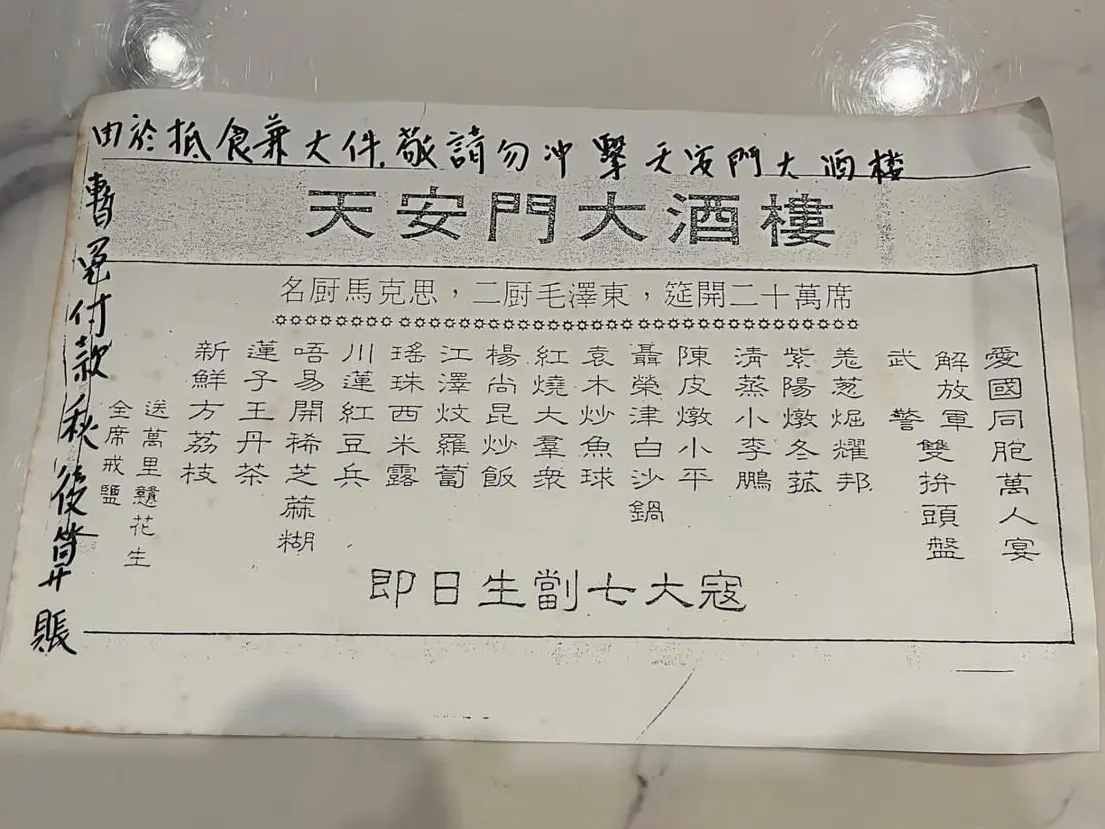 由於抵食兼大件,敬請勿冲擊天安門大酒樓
暫免付款秋後算賬
天安門大酒樓
名厨馬克思，二厨毛澤東，筵開二十萬席
愛國同胞萬人宴
解放軍
武警
雙拚頭盤
羗葱焗耀邦
紫陽燉冬菰
清蒸小李鵬
陳皮燉小平
聶榮津白沙鍋
袁木炒魚球
紅燒大羣衆
楊尚昆炒飯
江澤炆羅蔔
瑤珠西米露
川蓮紅豆兵
唔易開稀芝蔴糊
蓮子王丹茶
新鮮方荔枝
送萬里戇花生
全席戒鹽
即日生劏七大寇